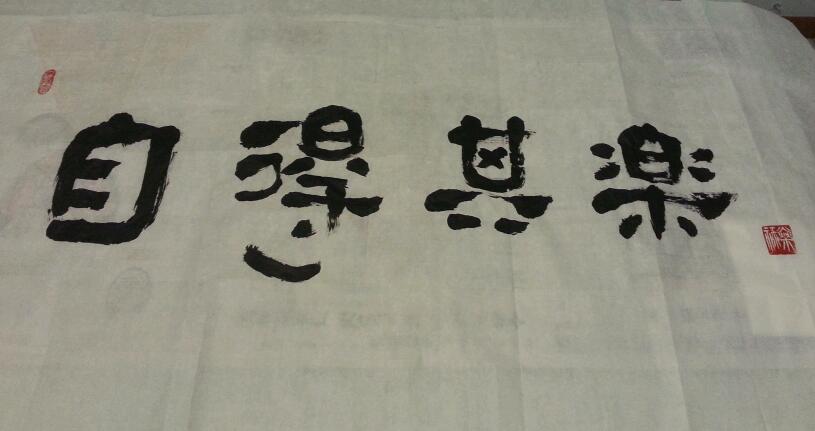 自得其樂